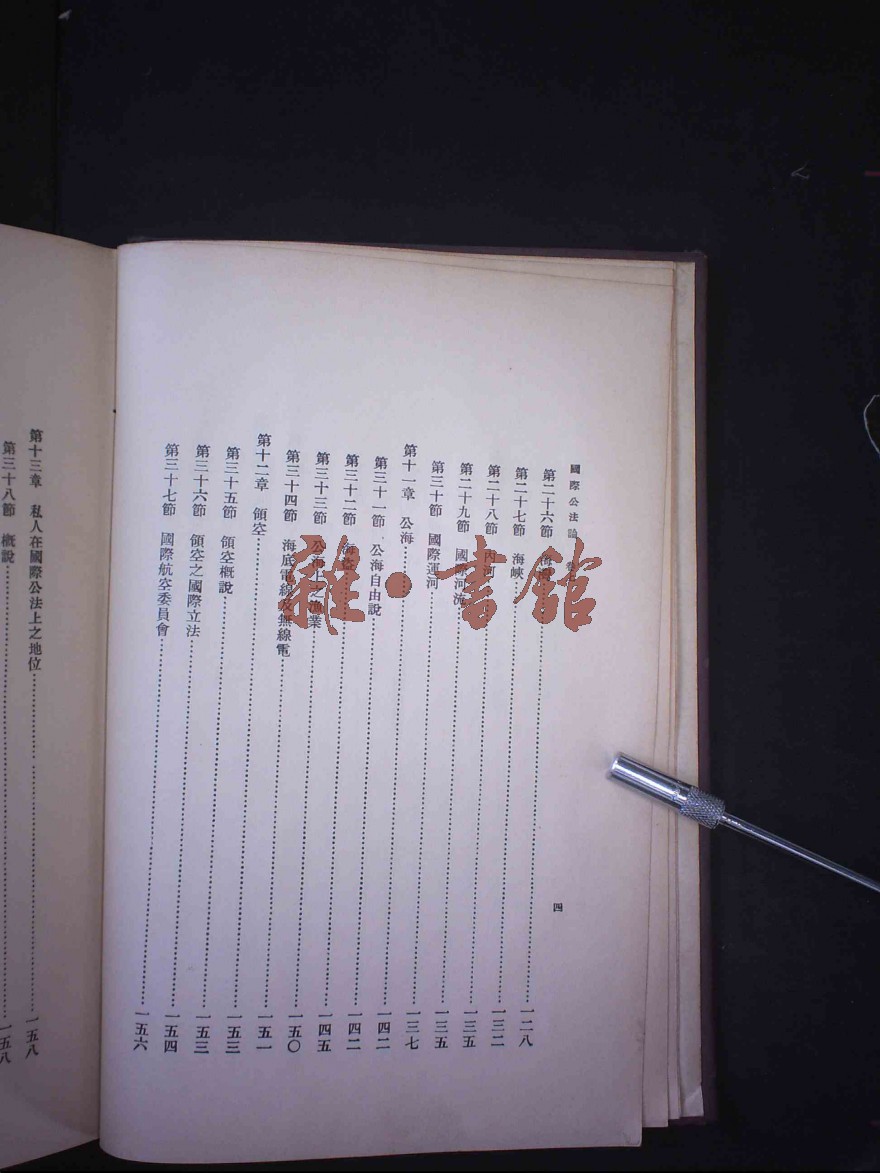 國際公法論
第二十六節 海灣……一二八
第二十七節 海峽……一三二
第二十八節 內河……一三五
第二十九節 國際河流……一三五
第三十節 國際運河……一三七
第十一章 公海……一四二
第三十一節 公海自由說……一四二
第三十二節 海盜……一四五
第三十三節 公海上之漁業……一五〇
第三十四節 海底電線及無線電……一五一
第十二章 領空……一五三
第三十五節 領空概說……一五三
第三十六節 領空之國際立法……一五四
第三十七節 國際航空委員會……一五六
四
第十三章 私人在國際公法上之地位……一五八
第三十八節 概說……一五八
雜·書館